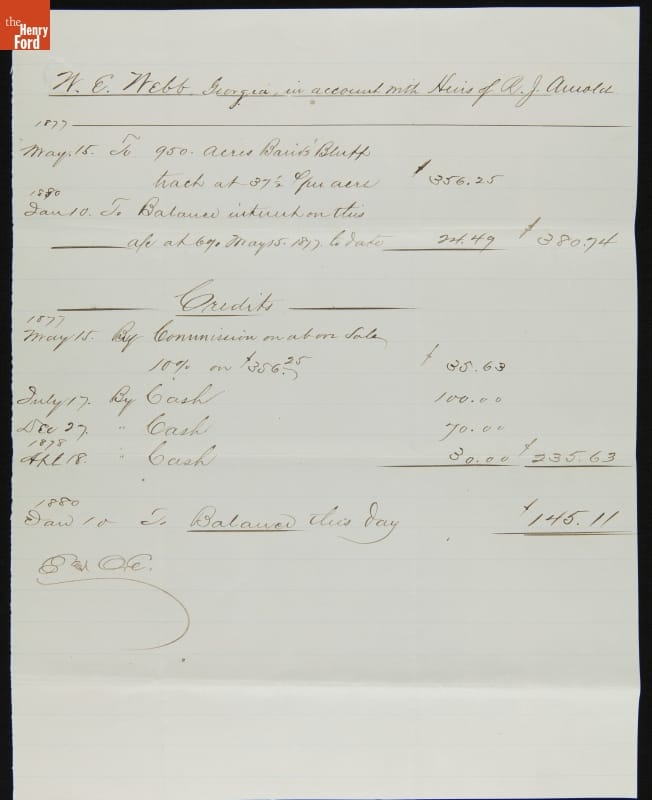 the
Henry
Ford
W. E. Webb, Georgia, in account with Heirs of R. J. Arnold
1877
May. 15. To 950. acres Bluff
tract at 37½ ¢ per acre $356.25
1880
Jan 10. To Balance interest on this
a/c at 6% May 15. 1877 to date 24.49 $380.74
Credits
1877
May 15. By Commission on above Sale,
10% on $356.25 $35.63
July 17. By Cash 100.00
Dec 27. " Cash 70.00
1878
Apl 18. " Cash 30.00 $235.63
1880
Jan 10 To Balance this day $145.11
E & O. E.